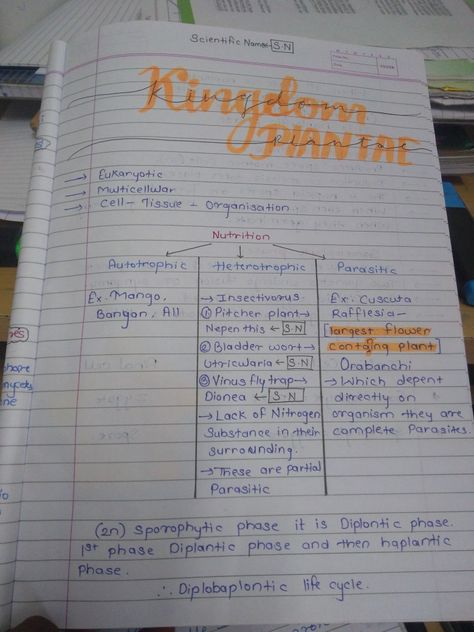 Scientific Name - S.N
Kingdom
PLANTAE
→ Eukaryotic
→ Multicellular
→ Cell - Tissue - Organisation
Nutrition
Autotrophic
Ex. Mango,
Bangan, All
Heterotrophic
→ Insectivorus
① Pitcher plant→
Nepenthis ← S.N
② Bladder wort→
Utricularia ← S.N
③ Vinus fly trap→
Dionea ← S.N
→ Lack of Nitrogen
Substance in their
surrounding.
→ These are partial
Parasitic
Parasitic
Ex. Cuscuta
Rafflesia-
largest flower
containg plant
Orabanchi
→ Which depent
directly on
organism they are
complete Parasites.
(2n) Sporophytic phase it is Diplontic phase.
1st phase Diplantic phase and then haplantic
phase.
∴ Diplobaplontic life cycle.